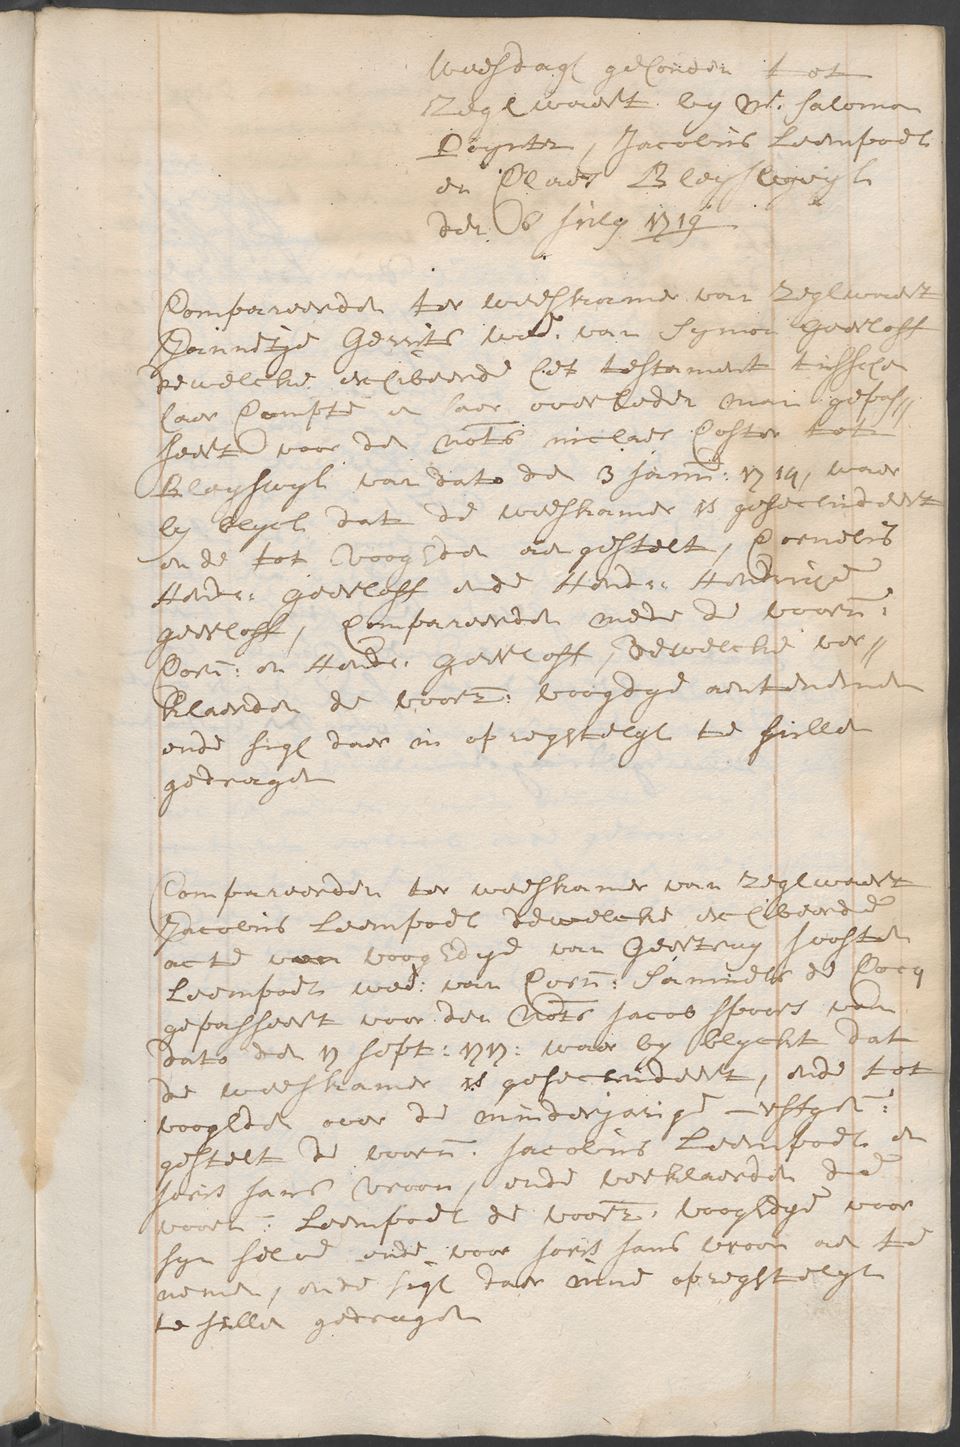 Weesdagh gehouden tot
Zeghwaert by Mr. Salomon
Poynte, Jacobus Leempoel
en Claes Bleyswyk
den 6 July 1719
Compareerden ter weeskamer van Zeghwaert
Jannetje Gerrits wed: van Symon Geerloff
dewelcke exhibeerde het testament tusschen
haer Compte en haer overleden man gepas//
seert voor den Nots niclaes Coster tot
Bleyswyk van dato den 3 Janu: 1714, waer
by blyct dat de weeskamer is geseclud eert
ende tot vooghden aengestelt, Cornelis
Hendr: Geerloff ende Hendr: Hendrickse
geerloff, Compareerden mede de voorn:
Corn: en Hendr: Geerloff, dewelcke ver//
klaerden de voorz: voogdye aentenemen
ende sigh daer in opregtelyk te sullen
gedragen
Compareerden ter weeskamer van Zeghwaert
Jacobus Leempoel dewelcke exhibeerde
acte van vooghdye van Geertruy Joosten
Leempoel wed: van Corn: Samuels de Cocq
gepasseert voor den Nots Jacob Spoors van
dato den 17 Sept: 1717: waer by blyckt dat
de weeskamer is gesecludeert, ende tot
vooghden over de minderjarige erffgen:
gestelt de voorn: Jacobus Leempoel en
Joris Jans Vroon, ende verklaerden de
voorn: Leempoel de voorz: vooghdye voor
syn selve ende voor Joris Jans Vroon aen te
nemen, ende sigh daer inne opregtelyk
te sullen gedragen